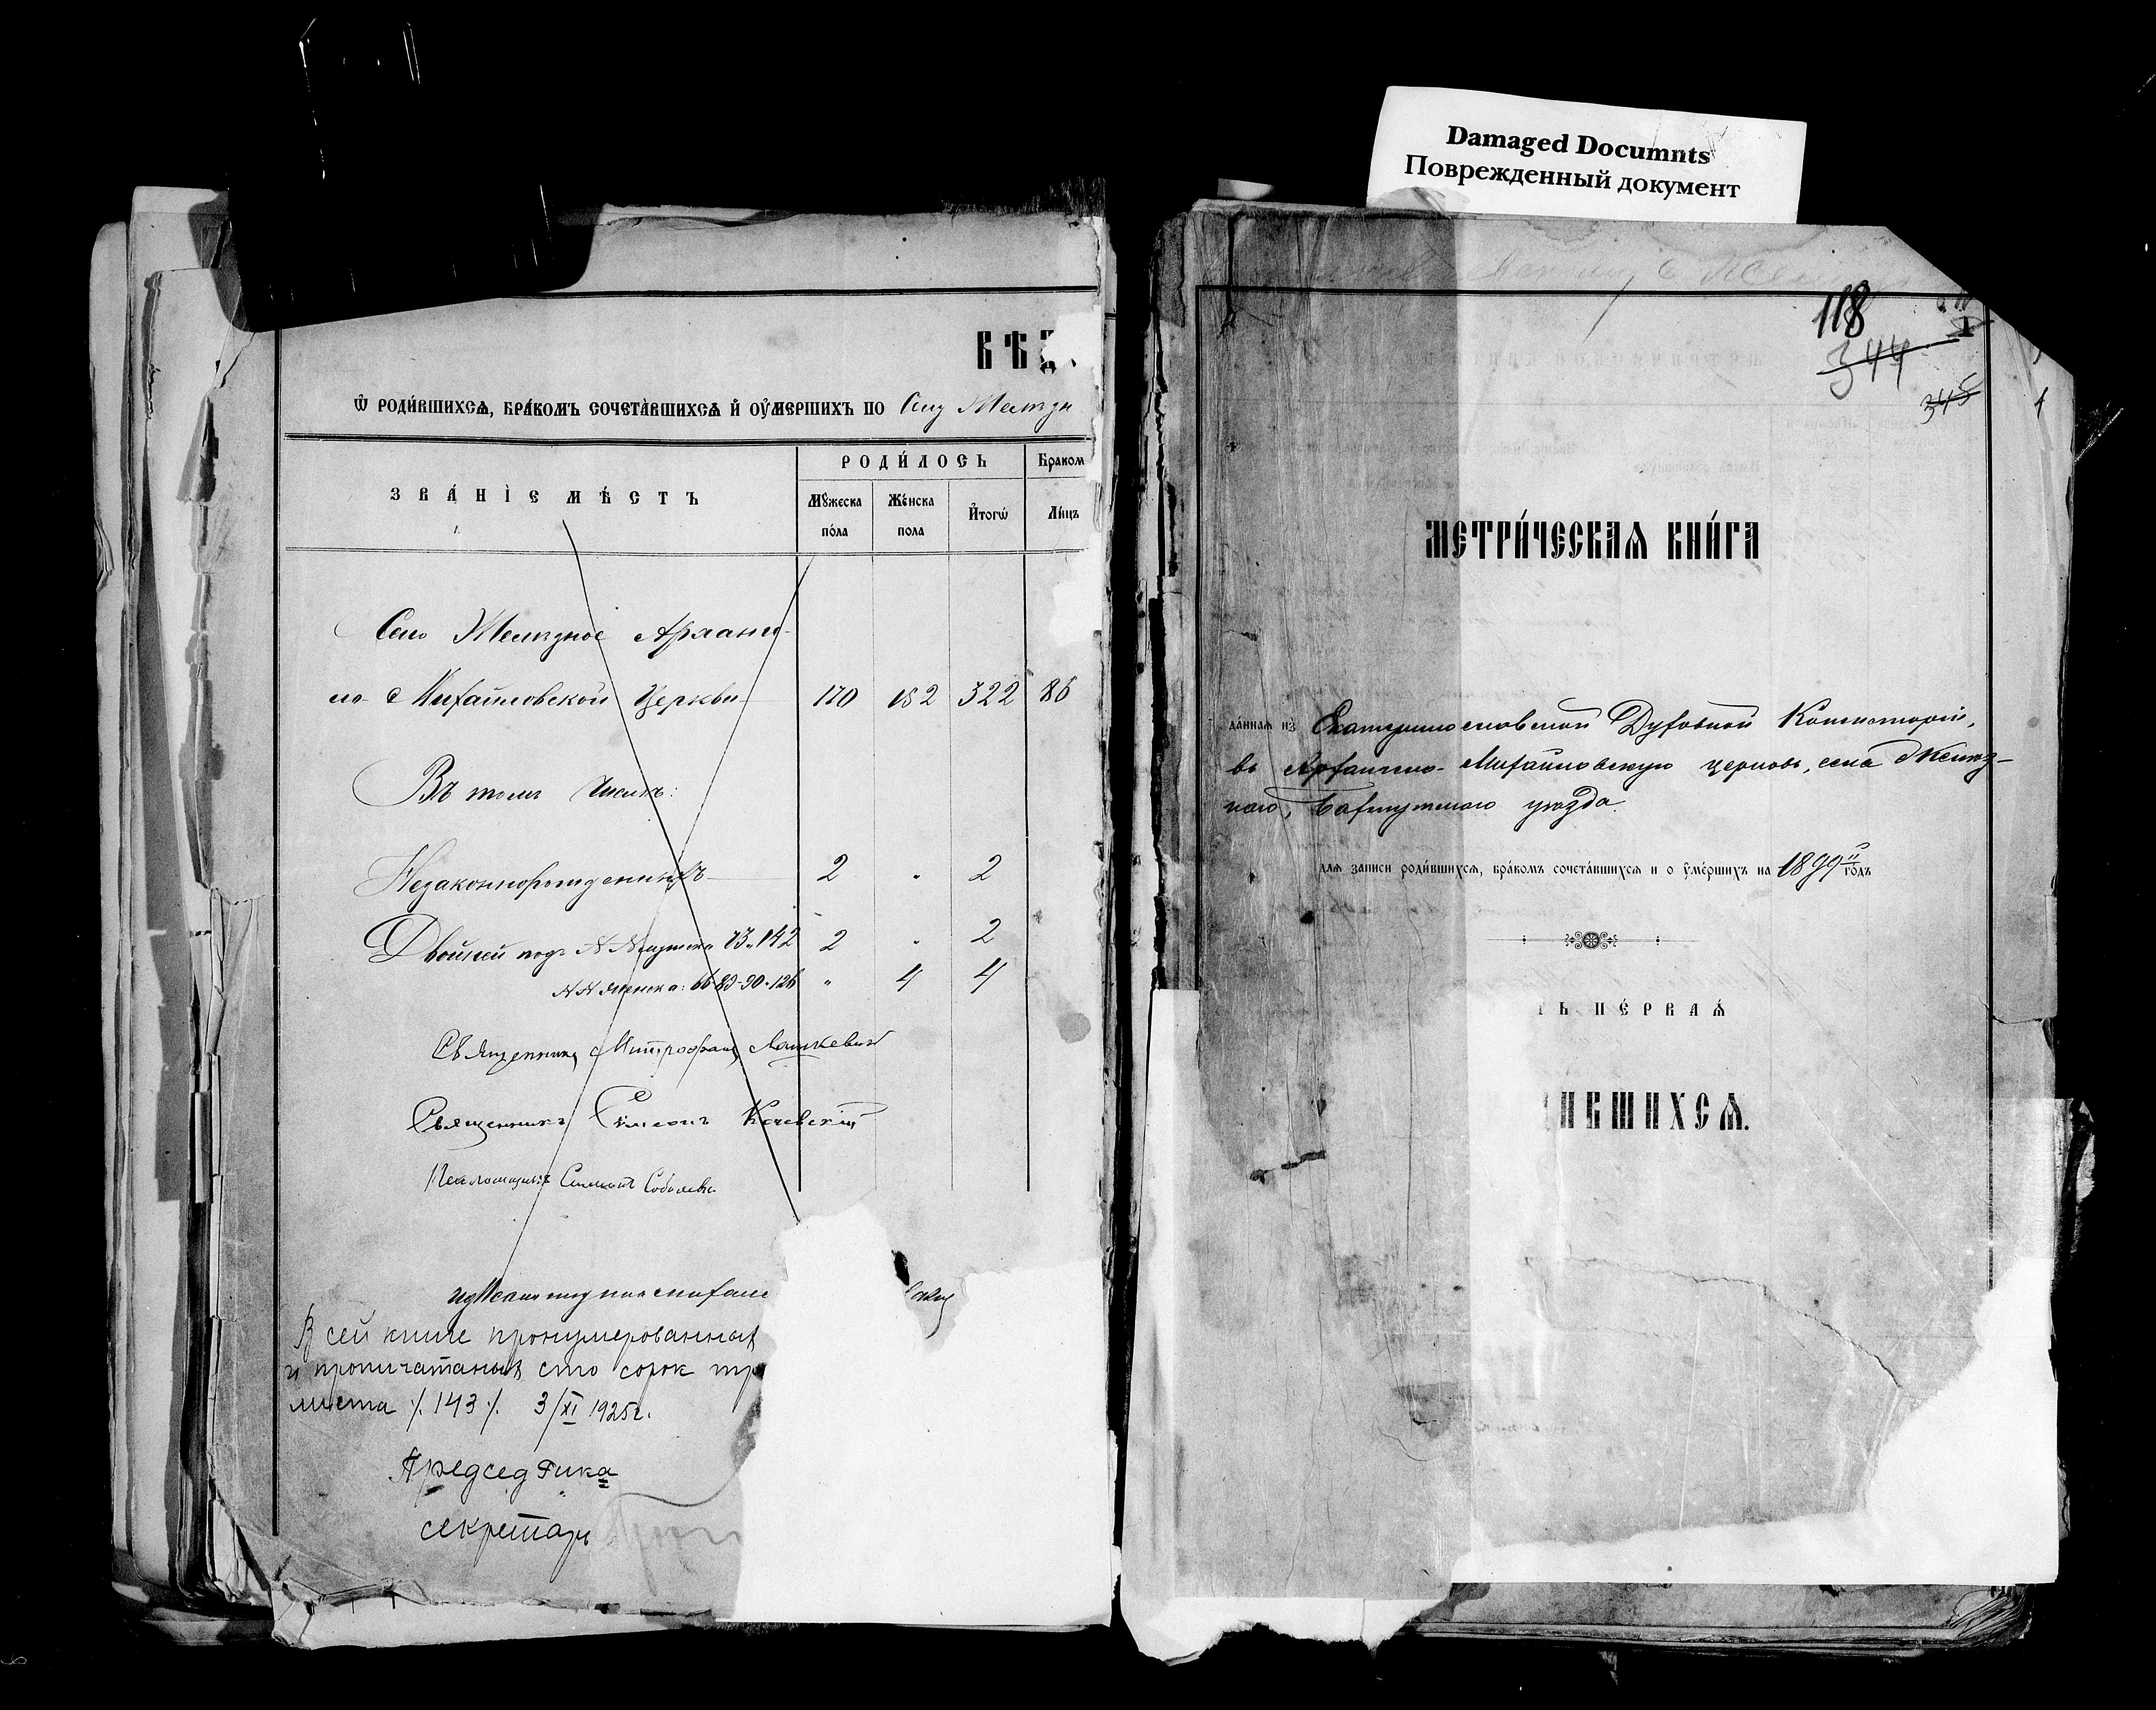 Damaged Documnts
Поврежденный документ
ВѢД
Ѡ РОДИ́ВШИХСѦ, БРА́КОМЪ СОЧЕТА́ВШИХСѦ И҆ ОУ҆МЕРШИХЪ ПО Селу Желѣзн
ЗВА́НІЕ МѢ́СТЪ
РОДИ́ЛОСЬ
Браком
Мꙋжеска по́ла
Же́нска пола
И҆тогѡ
Ли́цъ
Село Желѣзное Арханге-
ло-Михайловской Церкви 170 152 322 86
Въ томъ числѣ:
Незаконнорожденныхъ 2 „ 2
Двойней подъ № Мужска 73 и 142 2 „ 2
№№ женска: 66-89-90-126 „ 4 4
Священникъ Митрофанъ Лашкевич
Священникъ Симеонъ Качевскій
Псаломщикъ Симеонъ Соболевъ
В сей книге пронумерованных
и пропичатаных сто сорок тр
листа /.143./ 3/XI 1925г.
Председ Рика
секретарь
118
344
345
МЕТРИ́ЧЕСКАѦ КНИ́ГА
да́ннаѧ из Екатеринославской Духовной Консисторіи,
въ Архангело-Михайловскую церковь, села Желѣз-
наго, Бахмутскаго уѣзда.
для записи роди́вшихсѧ, бра́комъ сочета́вшихсѧ и о ꙋме́ршихъ на 1899й годъ
Ь ПЕ́РВАѦ
ИВШИХСѦ.